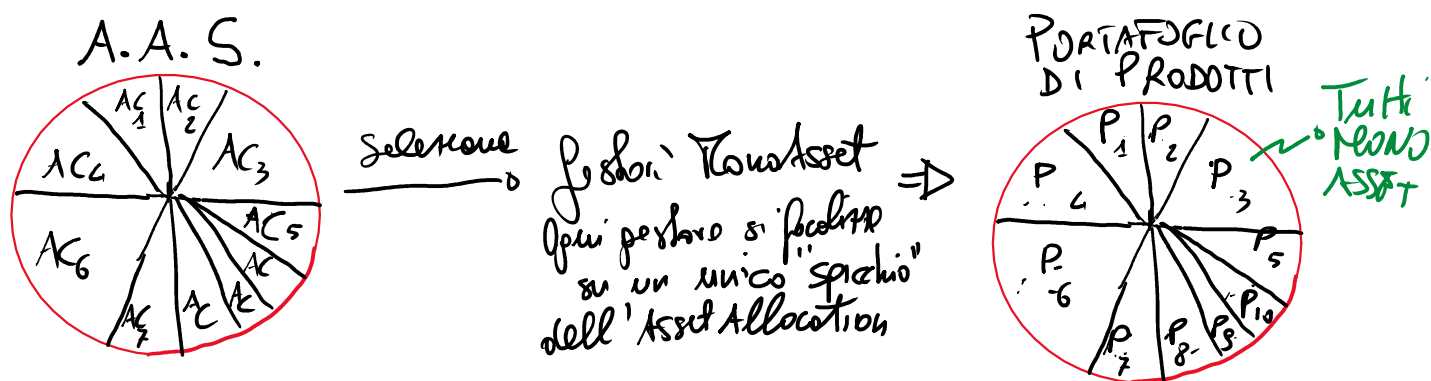 A.A.S.
AC1
AC2
AC4
AC3
AC5
AC6
AC
AC
AC
AC7
Selezione
Gestori MonoAsset
Ogni gestore si focalizza
su un unico "spicchio"
dell'Asset Allocation
PORTAFOGLIO
DI PRODOTTI
P1
P2
P4
P3
P5
P6
P10
P9
P8
P7
Tutti
MONO
ASSET